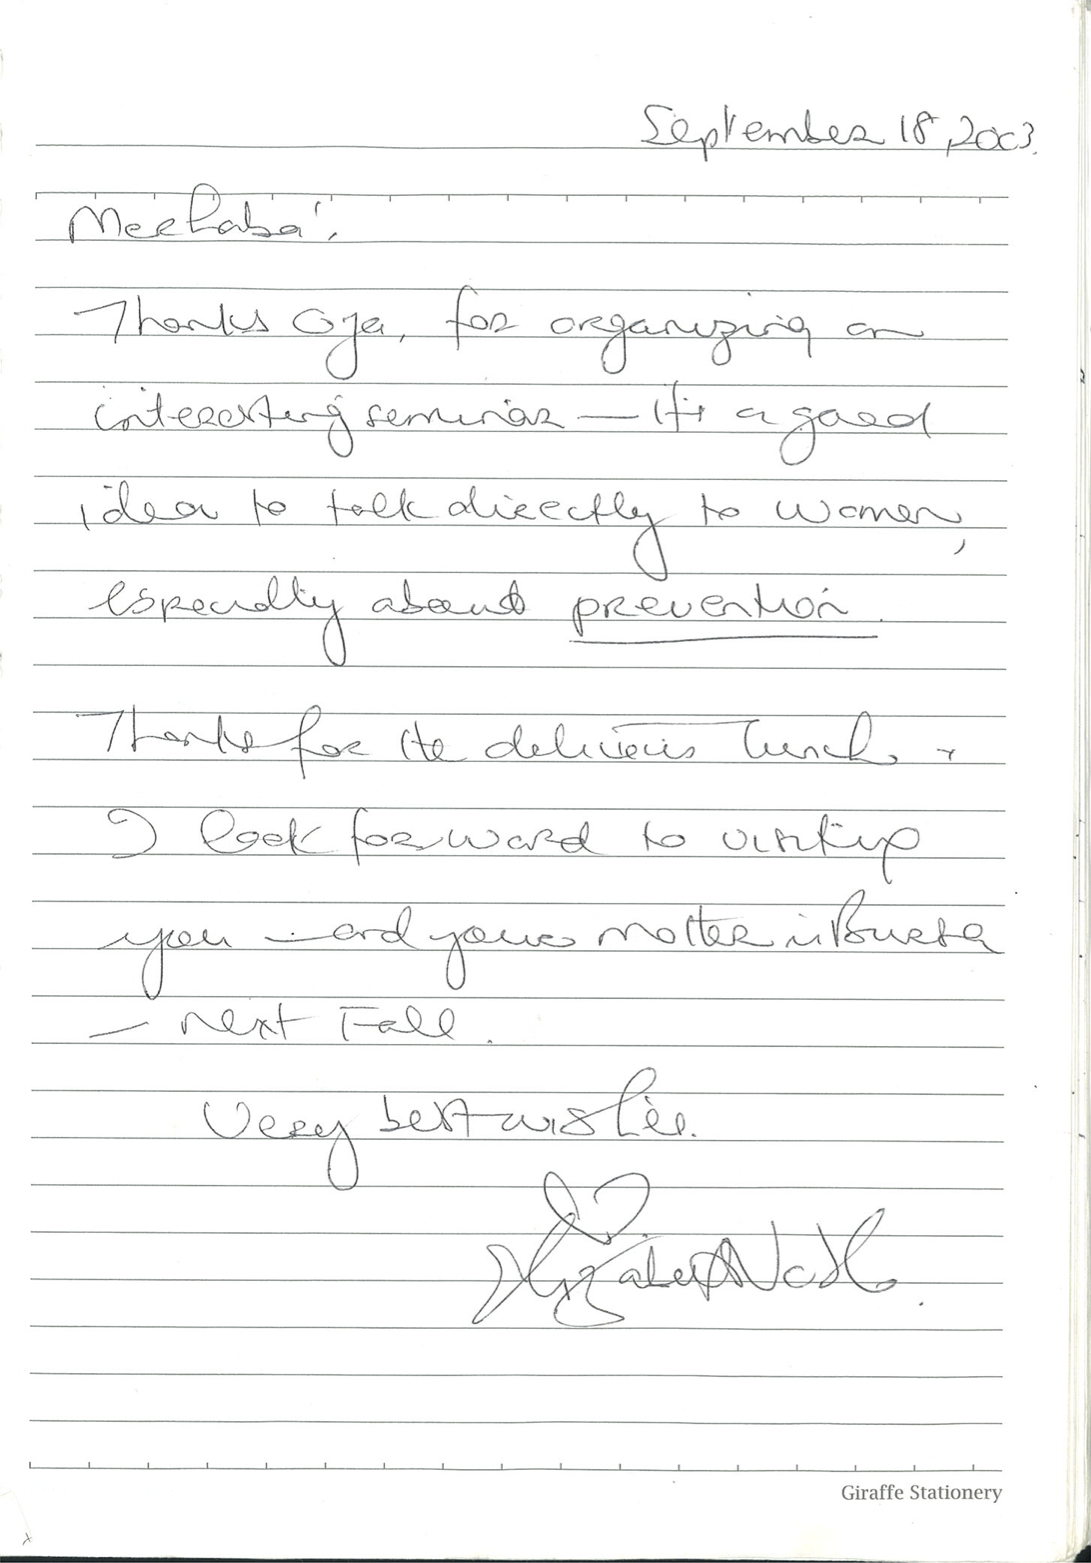 September 18, 2003.
Merhaba!
Thanks Oya, for organizing an
interesting seminar — It's a good
idea to talk directly to women,
especially about prevention.
Thanks for the delicious lunch +
I look forward to visiting
you — and your mother in Bursa
— next Fall.
Very best wishes.
Elizabeth
Giraffe Stationery